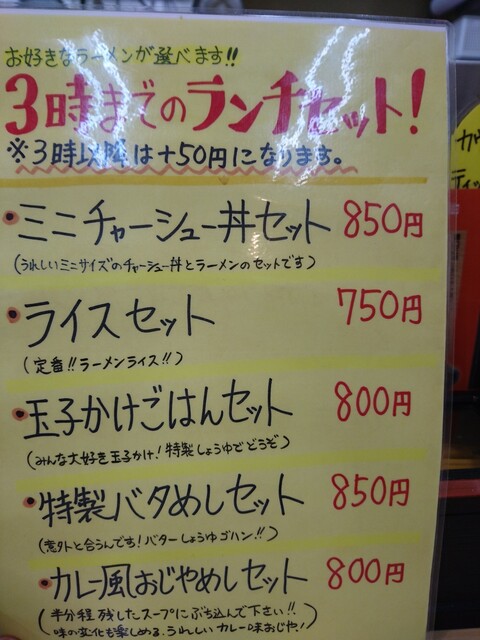 お好きなラーメンが選べます!!
3時までのランチセット!
※3時以降は+50円になります。
・ミニチャーシュー丼セット 850円
(うれしいミニサイズのチャーシュー丼とラーメンのセットです)
・ライスセット 750円
(定番!!ラーメンライス!!)
・玉子かけごはんセット 800円
(みんな大好き玉子かけ!特製しょうゆでどうぞ)
・特製バタめしセット 850円
(意外と合うんです!バターしょうゆゴハン!!)
・カレー風おじやめしセット 800円
(半分程残したスープにぶち込んで下さい!!
味の変化も楽しめる、うれしいカレー味おじや!)
ティッ